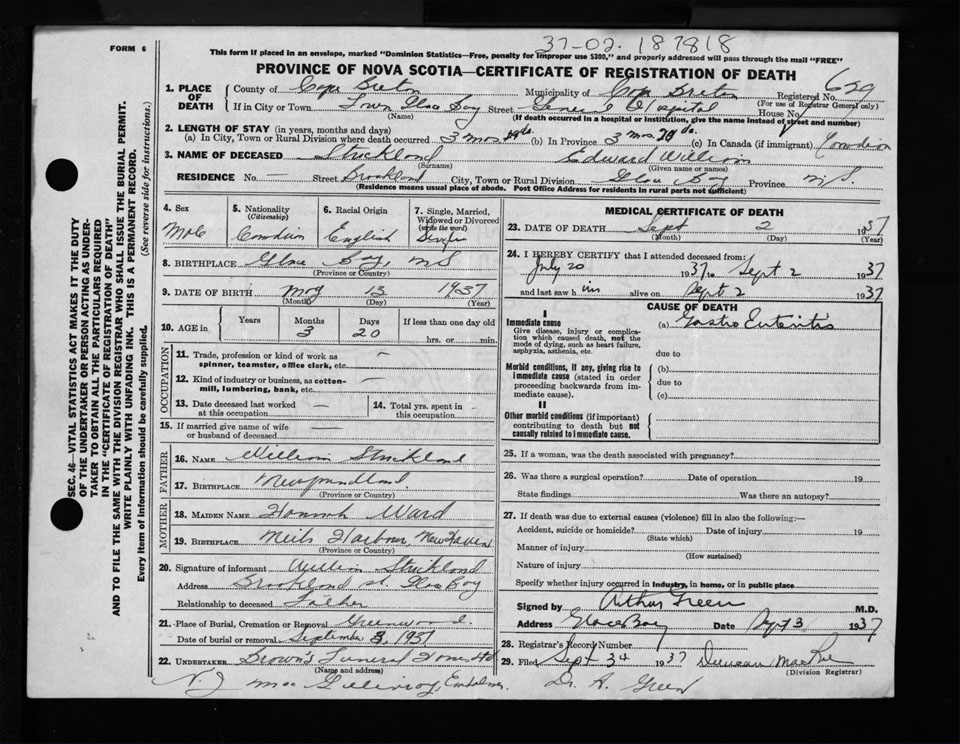 FORM 6
37-02. 187818
This form if placed in an envelope, marked "Dominion Statistics—Free, penalty for improper use $300," and properly addressed will pass through the mail "FREE"
PROVINCE OF NOVA SCOTIA—CERTIFICATE OF REGISTRATION OF DEATH
1. PLACE OF DEATH
County of Cape Breton Municipality of Cape Breton Registered No. 629
(For use of Registrar General only)
If in City or Town Town Glace Bay Street General Hospital House No.
(Name) (If death occurred in a hospital or institution, give the name instead of street and number)
2. LENGTH OF STAY (in years, months and days)
(a) In City, Town or Rural Division where death occurred 3 mos. 20 ds. (b) In Province 3 mos. 20 ds. (c) In Canada (if immigrant) Canadian
3. NAME OF DECEASED Strickland Edward William
(Surname) (Given name or names)
RESIDENCE No. — Street Brookland City, Town or Rural Division Glace Bay Province N.S.
(Residence means usual place of abode. Post Office Address for residents in rural parts not sufficient)
SEC. 46—VITAL STATISTICS ACT MAKES IT THE DUTY
OF THE UNDERTAKER OR PERSON ACTING AS UNDER-
TAKER TO OBTAIN ALL THE PARTICULARS REQUIRED
IN THE "CERTIFICATE OF REGISTRATION OF DEATH"
AND TO FILE THE SAME WITH THE DIVISION REGISTRAR WHO SHALL ISSUE THE BURIAL PERMIT.
WRITE PLAINLY WITH UNFADING INK. THIS IS A PERMANENT RECORD.
Every item of information should be carefully supplied. (See reverse side for instructions.)
4. Sex Male
5. Nationality (Citizenship) Canadian
6. Racial Origin English
7. Single, Married, Widowed or Divorced (write the word) Single
8. BIRTHPLACE Glace Bay, N.S.
(Province or Country)
9. DATE OF BIRTH May 13 1937
(Month) (Day) (Year)
10. AGE in Years Months 3 Days 20 If less than one day old
hrs. or min.
OCCUPATION
11. Trade, profession or kind of work as spinner, teamster, office clerk, etc. —
12. Kind of industry or business, as cotton-mill, lumbering, bank, etc. —
13. Date deceased last worked at this occupation —
14. Total yrs. spent in this occupation —
15. If married give name of wife or husband of deceased —
FATHER
16. NAME William Strickland
17. BIRTHPLACE Newfoundland
(Province or Country)
MOTHER
18. MAIDEN NAME Hannah Ward
19. BIRTHPLACE Neils Harbour, New Haven
(Province or Country)
20. Signature of informant William Strickland
Address Brookland St. Glace Bay
Relationship to deceased Father
21. Place of Burial, Cremation or Removal Greenwood
Date of burial or removal September 3, 1937
22. UNDERTAKER Brown's Funeral Home Ltd
(Name and address)
MEDICAL CERTIFICATE OF DEATH
23. DATE OF DEATH Sept 2 1937
(Month) (Day) (Year)
24. I HEREBY CERTIFY that I attended deceased from:
July 20 1937 to Sept 2 1937
and last saw him alive on Sept 2 1937
CAUSE OF DEATH
I
Immediate cause
Give disease, injury or complication which caused death, not the mode of dying, such as heart failure, asphyxia, asthenia, etc.
(a) Gastro Enteritis
due to
Morbid conditions, if any, giving rise to immediate cause (stated in order proceeding backwards from immediate cause).
(b)
due to
(c)
II
Other morbid conditions (if important) contributing to death but not causally related to immediate cause.
25. If a woman, was the death associated with pregnancy?
26. Was there a surgical operation? Date of operation 19
State findings Was there an autopsy?
27. If death was due to external causes (violence) fill in also the following:—
Accident, suicide or homicide? Date of injury 19
(State which)
Manner of injury
(How sustained)
Nature of injury
Specify whether injury occurred in industry, in home, or in public place
Signed by Arthur Green M.D.
Address Glace Bay Date Sept 3 1937
28. Registrar's Record Number
29. Filed Sept 3rd 1937 Duncan MacRae
(Division Registrar)
Embalmer.
Dr. A. Green